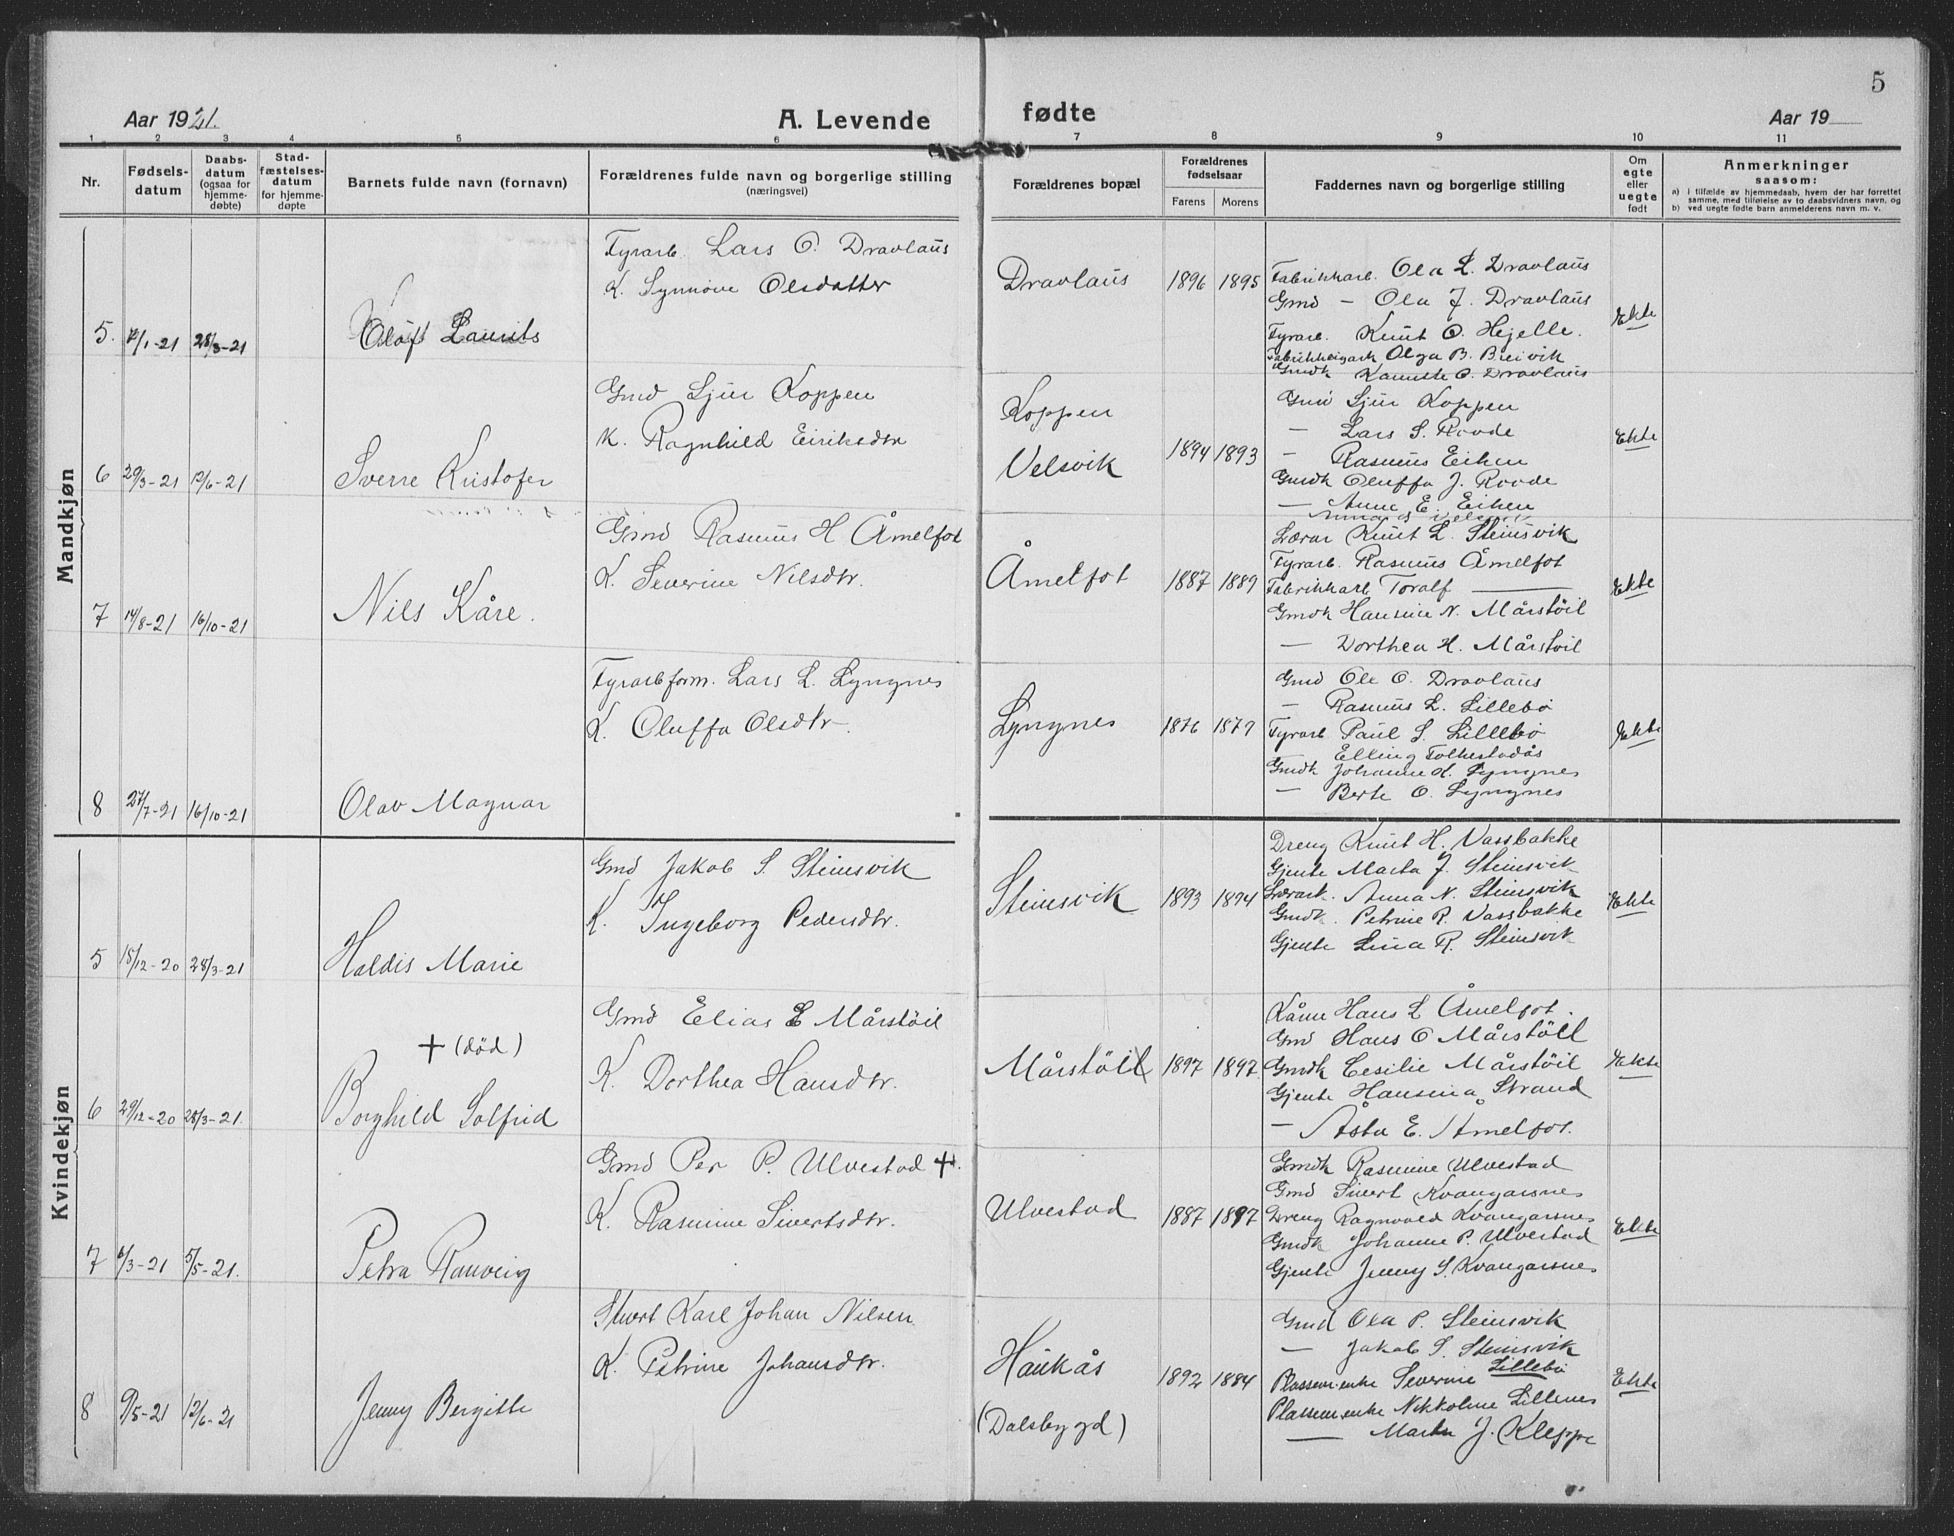 5
Aar 1921.
A. Levende
fødte
Aar 19
1 2 3 4 5 6 7 8 9 10 11
Nr.
Fødsels-
datum
Daabs-
datum
(ogsaa for
hjemme-
døbte)
Stad-
fæstelses-
datum
for hjemme-
døpte
Barnets fulde navn (fornavn)
Forældrenes fulde navn og borgerlige stilling
(næringsvei)
Forældrenes bopæl
Forældrenes
fødselsaar
Farens Morens
Faddernes navn og borgerlige stilling
Om
egte
eller
uegte
født
Anmerkninger
saasom:
a) i tilfælde av hjemmedaab, hvem der har forrettet
samme, med tilføielse av to daabsvidners navn, og
b) ved uegte fødte barn anmelderens navn m. v.
Mandkjøn
5. 12/1-21 28/3-21
Olaf Laurits
Fyrarb. Lars O. Dravlaus
K. Synnøve Olsdatter
Dravlaus
1896 1895
Fabrikkarb. Ola L. Dravlaus
Gmd — Ola J. Dravlaus
Fyrarb. Knut O. Hejelle.
Olga B. Breivik
Gmdk O. Dravlaus
Ekte
6 29/3-21 12/6-21
Sverre Kristofer
Gmd Sjur Koppen
K. Ragnhild Eiriksdtr
Koppen
Velsvik
1894 1893
Gmd Sjur Koppen
— Lars S. Roode
— Rasmus Eiken
Gmdk Oluffa J. Roode
— Anne E. Eiken
Ekte
7 14/8-21 16/10-21
Nils Kåre.
Gmd Rasmus H Åmelfot
K. Severine Nilsdtr.
Åmelfot
1887 1889
Lærar Knut L. Steinsvik
Fyrarb. Rasmus Åmelfot
Fabrikkarb Toralf —
Gmdk Hansine N. Mårstøil
— Dorthea H. Mårstöil
Ekte
8 27/7-21 16/10-21
Olav Magnar
Fyrarbform. Lars L. Lyngnes
K. Oluffa Olsdtr
Lyngnes
1876 1879
Gmd Ole O. Dravlaus
— Rasmus L. Lillebø
Fyrarb. Paul S. Lillebø
Elling Folkestadås
Gmdk Johanne H. Lyngnes
— Berte O. Lyngnes
Ekte
Kvindekjøn
5 18/12-20 28/3-21
Haldis Marie
Gmd Jakob S. Steinsvik
K. Ingeborg Pedersdtr.
Steinsvik
1893 1894
Dreng Knut H. Vassbakke
Gjente Marta J. Steinsvik
Anna N. Steinsvik
Gmdk. Petrine R. Vassbakke
Gjente Lina R. Steinsvik
Ekte
6 29/12-20 28/3-21.
+ (død)
Borghild Solfrid
Gmd Elias E Mårstöil
K. Dorthea Hansdtr.
Mårstöil
1897 1897
Kåne Hans L Åmelfot.
Gmd Hans O Mårstöil
Gmdk Cesilie Mårstöil
Gjente Hansina Strand
— Åsta E. Åmelfot.
Ekte
7 6/3-21 5/5-21.
Petra Ranveig
Gmd Per P. Ulvestad +.
K. Rasmine Sivertsdtr.
Ulvestad
1887 1897
Gmdk Rasmine Ulvestad
Gmd Sivert Kvangarsnes
Dreng Ragnvald Kvangarsnes
Gmdk Johanne P. Ulvestad
Gjente Jenny S. Kvangarsnes
Ekte
8 9/5-21 12/6-21
Jenny Bergitte
Karl Johan Nilsen
K. Petrine Johansdtr.
Haukås
(Dalsbygd)
1892 1884
Gmd Ola P. Steinsvik
— Jakob S. Steinsvik
Plassem.enke Severine Lillebø
Plassem.enke Nikkoline Lillenes
— Marta J. Kleppe
Ekte